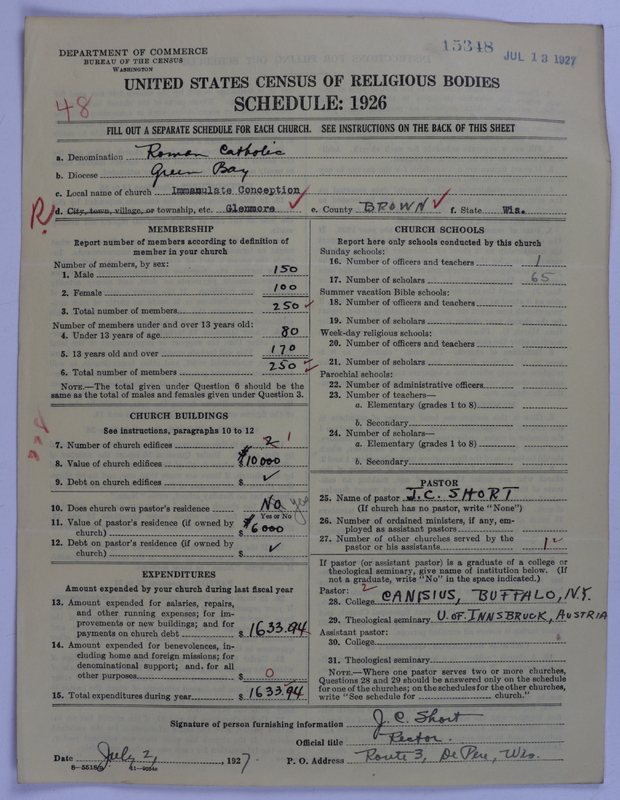 15348
JUL 13 1927
DEPARTMENT OF COMMERCE
BUREAU OF THE CENSUS
WASHINGTON
UNITED STATES CENSUS OF RELIGIOUS BODIES
SCHEDULE: 1926
48
FILL OUT A SEPARATE SCHEDULE FOR EACH CHURCH. SEE INSTRUCTIONS ON THE BACK OF THIS SHEET
a. Denomination Roman Catholic
b. Diocese Green Bay
c. Local name of church Immaculate Conception
R.
d. City, town, village, or township, etc. Glenmore ✓ e. County BROWN ✓ f. State Wis.
MEMBERSHIP
Report number of members according to definition of
member in your church
Number of members, by sex:
1. Male 150
2. Female 100
3. Total number of members 250 ✓
Number of members under and over 13 years old:
4. Under 13 years of age 80
5. 13 years old and over 170
6. Total number of members 250 ✓
NOTE.—The total given under Question 6 should be the
same as the total of males and females given under Question 3.
CHURCH BUILDINGS
See instructions, paragraphs 10 to 12
7. Number of church edifices 2 1
8. Value of church edifices $10000
9. Debt on church edifices $ ✓
10. Does church own pastor's residence No yes
Yes or No
11. Value of pastor's residence (if owned by
church) $6000
12. Debt on pastor's residence (if owned by
church) $ ✓
EXPENDITURES
Amount expended by church during last fiscal year
13. Amount expended for salaries, repairs,
and other running expenses; for im-
provements or new buildings; and for
payments on church debt $ 1633.94
14. Amount expended for benevolences, in-
cluding home and foreign missions; for
denominational support; and for all
other purposes $ 0
15. Total expenditures during year $ 1633.94
CHURCH SCHOOLS
Report here only schools conducted by this church
Sunday schools:
16. Number of officers and teachers 1
17. Number of scholars 65
Summer vacation Bible schools:
18. Number of officers and teachers
19. Number of scholars
Week-day religious schools:
20. Number of officers and teachers
21. Number of scholars
Parochial schools:
22. Number of administrative officers
23. Number of teachers—
a. Elementary (grades 1 to 8)
b. Secondary
24. Number of scholars—
a. Elementary (grades 1 to 8)
b. Secondary
PASTOR
25. Name of pastor J.C. SHORT
(If church has no pastor, write "None")
26. Number of ordained ministers, if any, em-
ployed as assistant pastors
27. Number of other churches served by the
pastor or his assistants 1 ✓
If pastor (or assistant pastor) is a graduate of a college or
theological seminary, give name of institution below. (If
not a graduate, write "No" in the space indicated.)
Pastor: 2
28. College CANISIUS, BUFFALO, N.Y.
29. Theological seminary U. OF. INNSBRUCK, AUSTRIA
Assistant pastor:
30. College
31. Theological seminary
NOTE.—Where one pastor serves two or more churches,
Questions 28 and 29 should be answered only on the schedule
for one of the churches; on the schedules for the other churches,
write "See schedule for church."
Signature of person furnishing information J. C. Short
Official title Rector.
Date July 2, 1927. P. O. Address Route 3, De Pere, Wis.